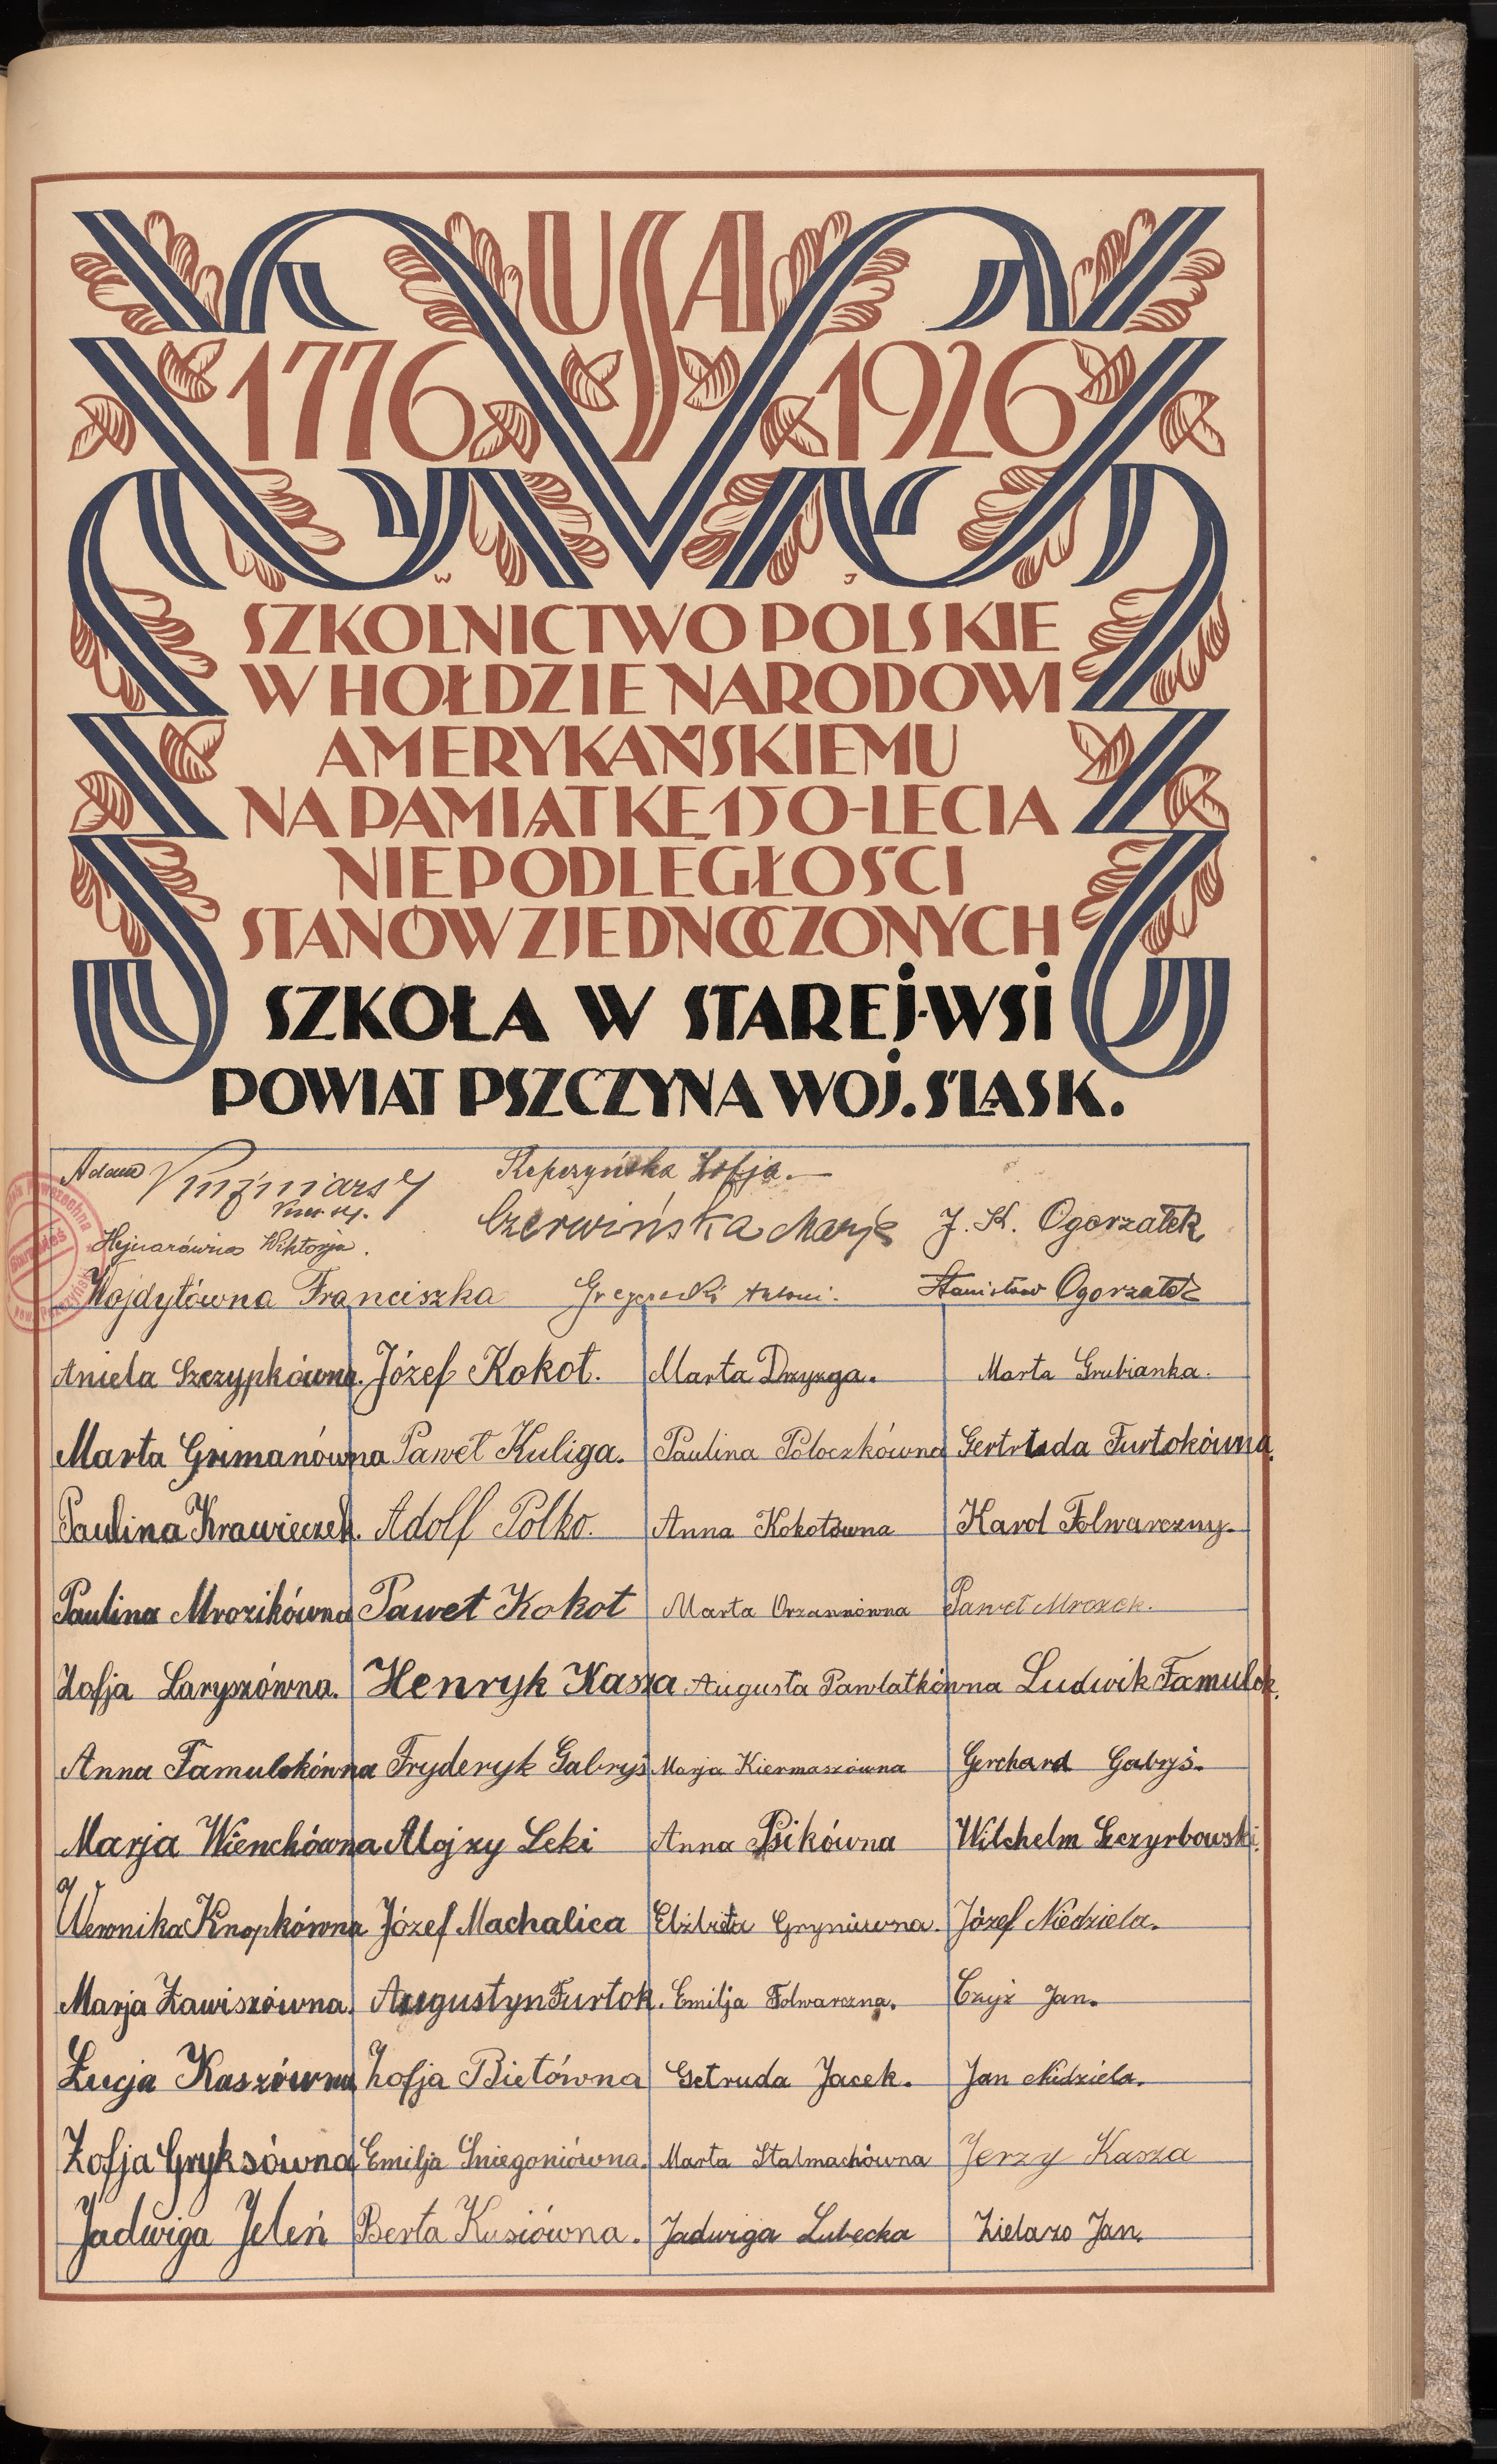 USA
1776 1926
W J
SZKOLNICTWO POLSKIE
W HOŁDZIE NARODOWI
AMERYKAŃSKIEMU
NA PAMIĄTKĘ 150-LECIA
NIEPODLEGŁOŚCI
STANÓW ZJEDNOCZONYCH
SZKOŁA W STAREJ-WSI
POWIAT PSZCZYNA WOJ. ŚLĄSK.
Adam Repczyńska Zofja.
Czerwińska Marja J. K. Ogorzałek
Hejnarówna Wiktorja.
Wojdyłówna Franciszka Antoni. Stanisław Ogorzałek
Aniela Szczypkówna. Józef Kokot. Marta Drzyzga. Marta Grubianka.
Marta Grimanówna Paweł Kuliga. Paulina Poloczkówna Gertruda Furtokówna.
Paulina Krawieczek. Adolf Polko. Anna Kokotówna Karol Folwarczny.
Paulina Mrozikówna Paweł Kokot Marta Orzannówna Paweł Mrozek.
Zofja Laryszówna. Henryk Kasza Augusta Pawlatkówna Ludwik Famulok.
Anna Famulokówna Fryderyk Gabryś Marja Kiermaszówna Gerchard Gabryś.
Marja Wienchówna Alojzy Leki Anna Psikówna Wilchelm Szczyrbowski.
Weronika Knopkówna Józef Machalica Elżbieta Józef Niedziela.
Marja Zawiszówna. Augustyn Furtok. Emilja Folwarczna. Czyż Jan.
Łucja Kaszówna Zofja Bietówna Getruda Jacek. Jan Niedziela.
Zofja Gryksówna Emilja Śniegoniówna. Marta Stalmachówna Jerzy Kasza
Jadwiga Jeleń Berta Kusiówna. Jadwiga Lubecka Zielazo Jan.